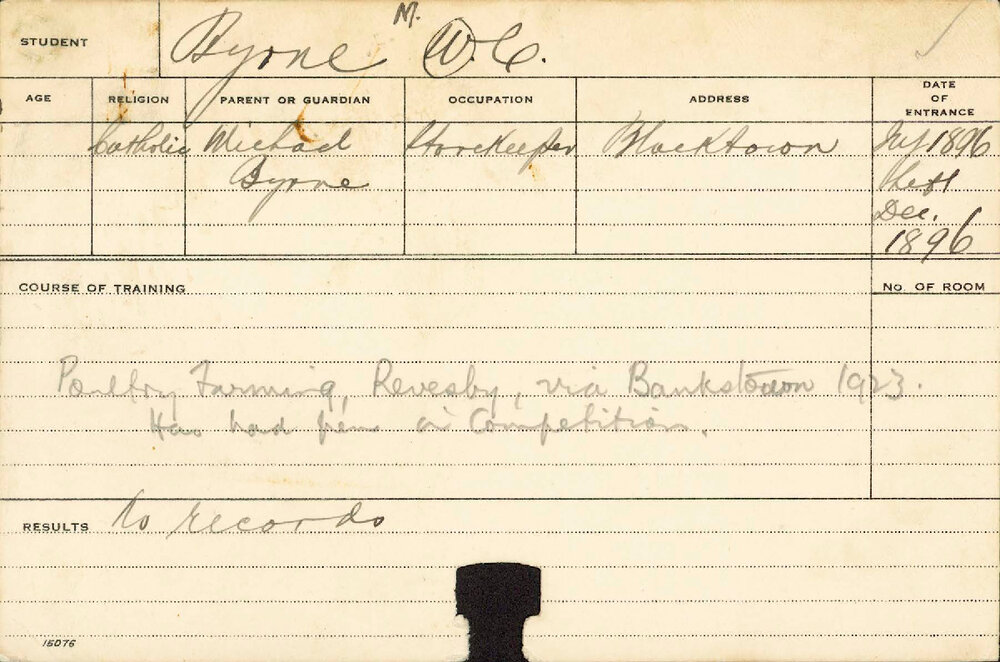 STUDENT Byrne M. W. C.
AGE RELIGION PARENT OR GUARDIAN OCCUPATION ADDRESS DATE OF ENTRANCE
Catholic Michael Storekeeper Blacktown July 1896
Byrne Left
Dec.
1896
COURSE OF TRAINING No. OF ROOM
Poultry Farming, Revesby, via Bankstown 1923.
Has had pens in Competition.
RESULTS No records
15076